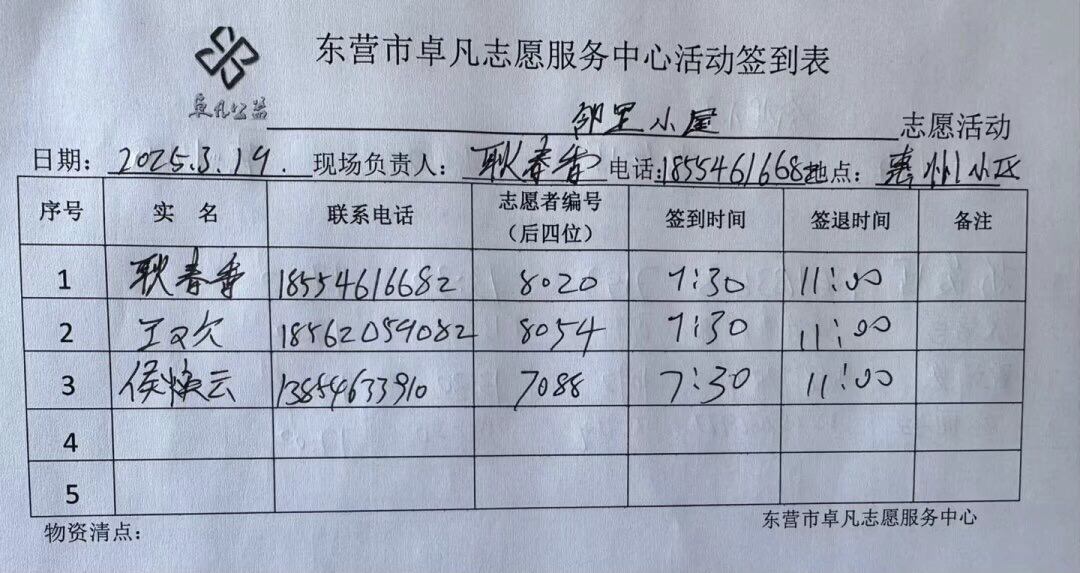 东营市卓凡志愿服务中心活动签到表
卓凡公益
邻里小屋 志愿活动
日期: 2025.3.19. 现场负责人: 耿春香 电话:1855461668 地点: 惠州小区
序号 实 名 联系电话 志愿者编号(后四位) 签到时间 签退时间 备注
1 耿春香 18554616682 8020 7:30 11:00
2 王 18562059082 8054 7:30 11:00
3 侯焕云 13854633910 7088 7:30 11:00
4
5
物资清点: 东营市卓凡志愿服务中心